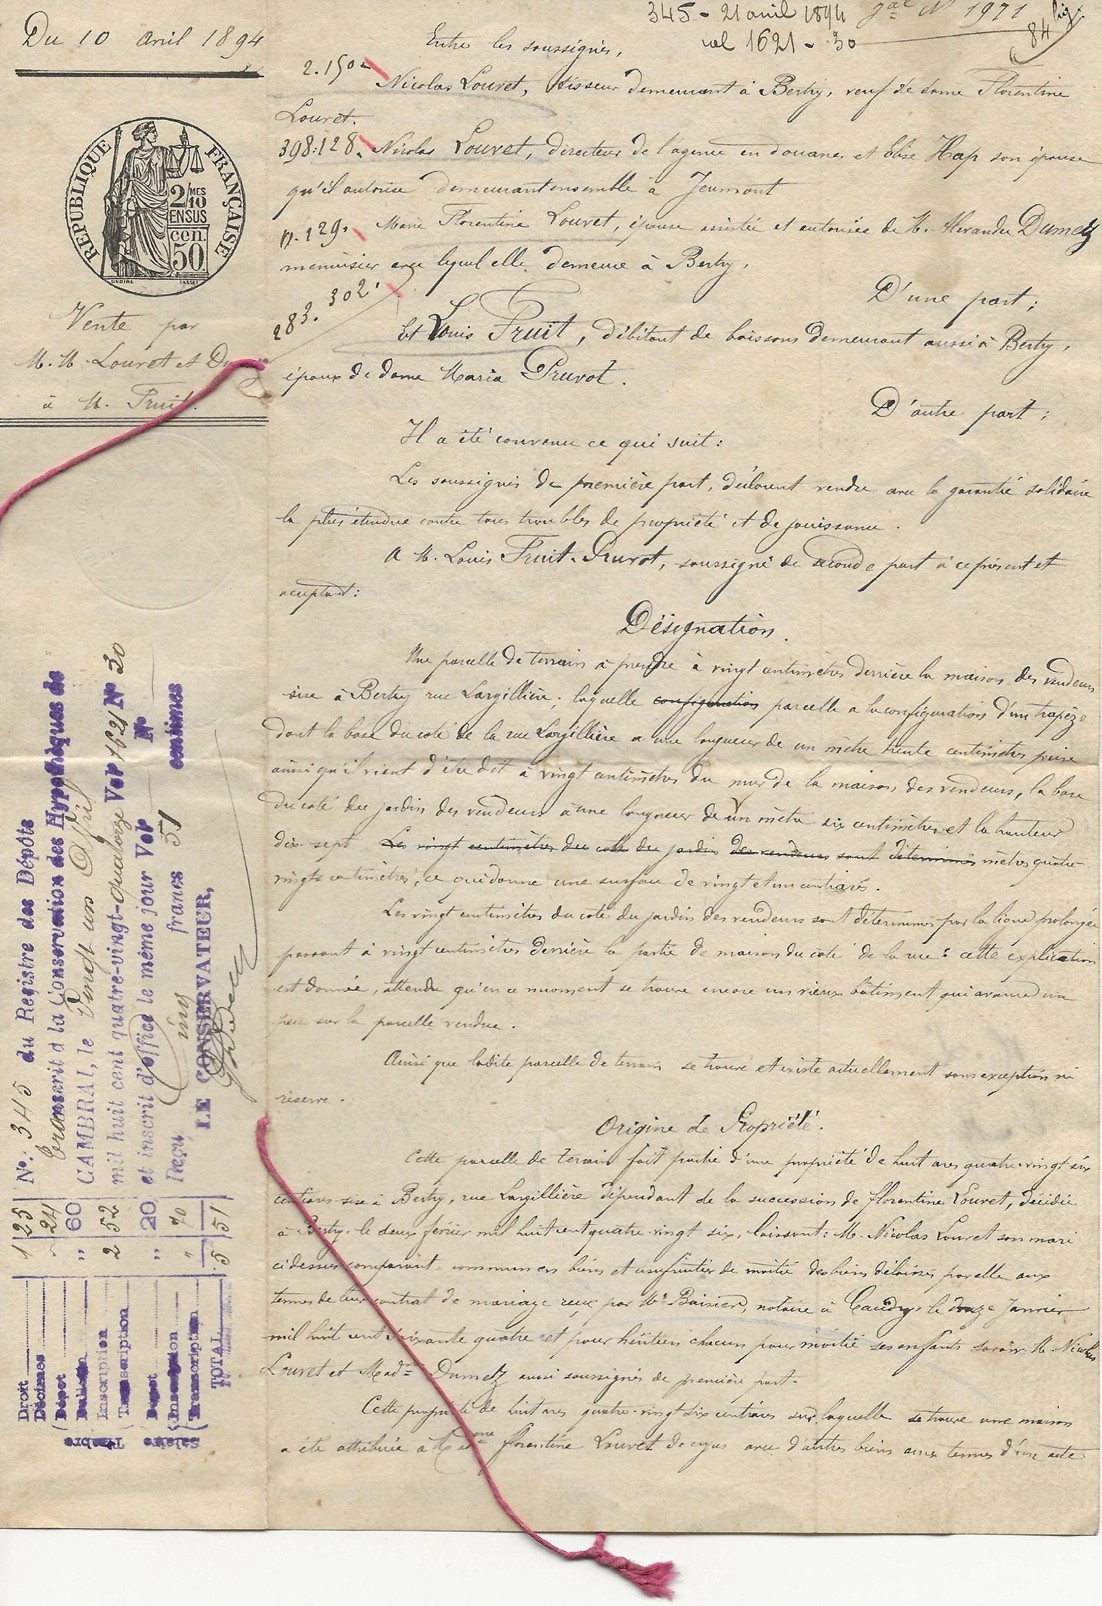 345 - 21 avril 1894 gal N° 1971
vol 1621 - 30
84
Du 10 avril 1894
RÉPUBLIQUE FRANÇAISE
2 MES
10
EN SUS
50 cen.
Vente par
M.M. Louvet et Du
à M. Fruit.
Entre les soussignés,
2.150
Nicolas Louvet, tisseur demeurant à Bertry, veuf de dame Florentine
Louvet.
398.128. Nicolas Louvet, directeur de l'agence en douanes et Elise Hap son épouse
qu'il autorise demeurant ensemble à Jeumont
129. Marie Florentine Louvet, épouse assistée et autorisée de M. Alexandre Dumetz
menuisier avec lequel elle demeure à Bertry.
D'une part;
283. 302
Et Louis Fruit, débitant de boissons demeurant aussi à Bertry,
époux de dame Maria Pruvot.
D'autre part;
Il a été convenu ce qui suit:
Les soussignés de première part, déclarent vendre avec la garantie solidaire
la plus étendue contre tous troubles de propriété et de jouissance.
A M. Louis Fruit-Pruvot, soussigné de seconde part à ce présent et
acceptant:
Désignation.
Une parcelle de terrain à prendre à vingt centimètres derrière la maison des vendeurs
sise à Bertry rue Largillière; laquelle configuration parcelle a la configuration d'un trapèze
dont la base du coté de la rue Largillière a une longueur de un mètre trente centimètres prise
ainsi qu'il vient d'être dit à vingt centimètres du mur de la maison des vendeurs, la base
du coté du jardin des vendeurs a une longueur de un mètre six centimètres et la hauteur
dix-sept Les vingt centimètres du coté du jardin des vendeurs sont déterminés mètres quatre-
vingts centimètres, ce qui donne une surface de vingt et un centiares.
Les vingt centimètres du coté du jardin des vendeurs sont déterminés par la ligne prolongée
passant à vingt centimètres derrière la partie de maison du coté de la rue: cette explication
est donnée, attendu qu'en ce moment se trouve encore un vieux bâtiment qui avance un
peu sur la parcelle vendue.
Ainsi que ladite parcelle de terrain se trouve et existe actuellement sans exception ni
réserve.
Origine de Propriété.
Cette parcelle de terrain fait partie d'une propriété de huit ares quatre-vingt six
centiares sise à Bertry, rue Largillière dépendant de la succession de Florentine Louvet, décédée
à Bertry, le deux février mil huit cent quatre-vingt six, laissant: M. Nicolas Louvet son mari
ci-dessus comparant commun en biens et usufruitier de moitié des biens délaissés par elle aux
termes de leur contrat de mariage reçu par Me Boisier, notaire à Caudry, le douze Janvier
mil huit cent soixante quatre et pour héritiers chacun pour moitié ses enfants savoir: M. Nicolas
Louvet et Made Dumetz aussi soussignés de première part.
Cette propriété de huit ares quatre-vingt six centiares sur laquelle se trouve une maison
a été attribuée à Florentine Louvet de cujus avec d'autres biens aux termes d'un acte
N°: 345 du Registre des Dépôts
Transcrit à la Conservation des Hypothèques de
CAMBRAI, le Vingt un Avril
mil huit cent quatre-vingt-quatorze Vol 1621 N° 30
et inscrit d'office le même jour Vol N°
Reçu cinq francs 51 centimes
LE CONSERVATEUR,
Droit 1 25
Décimes 24
Timbre Dépôt Bulletin " 60
Inscription
Transcription 2 52
Salaire Dépôt " 20
Inscription "
Transcription 70
TOTAL 5 51